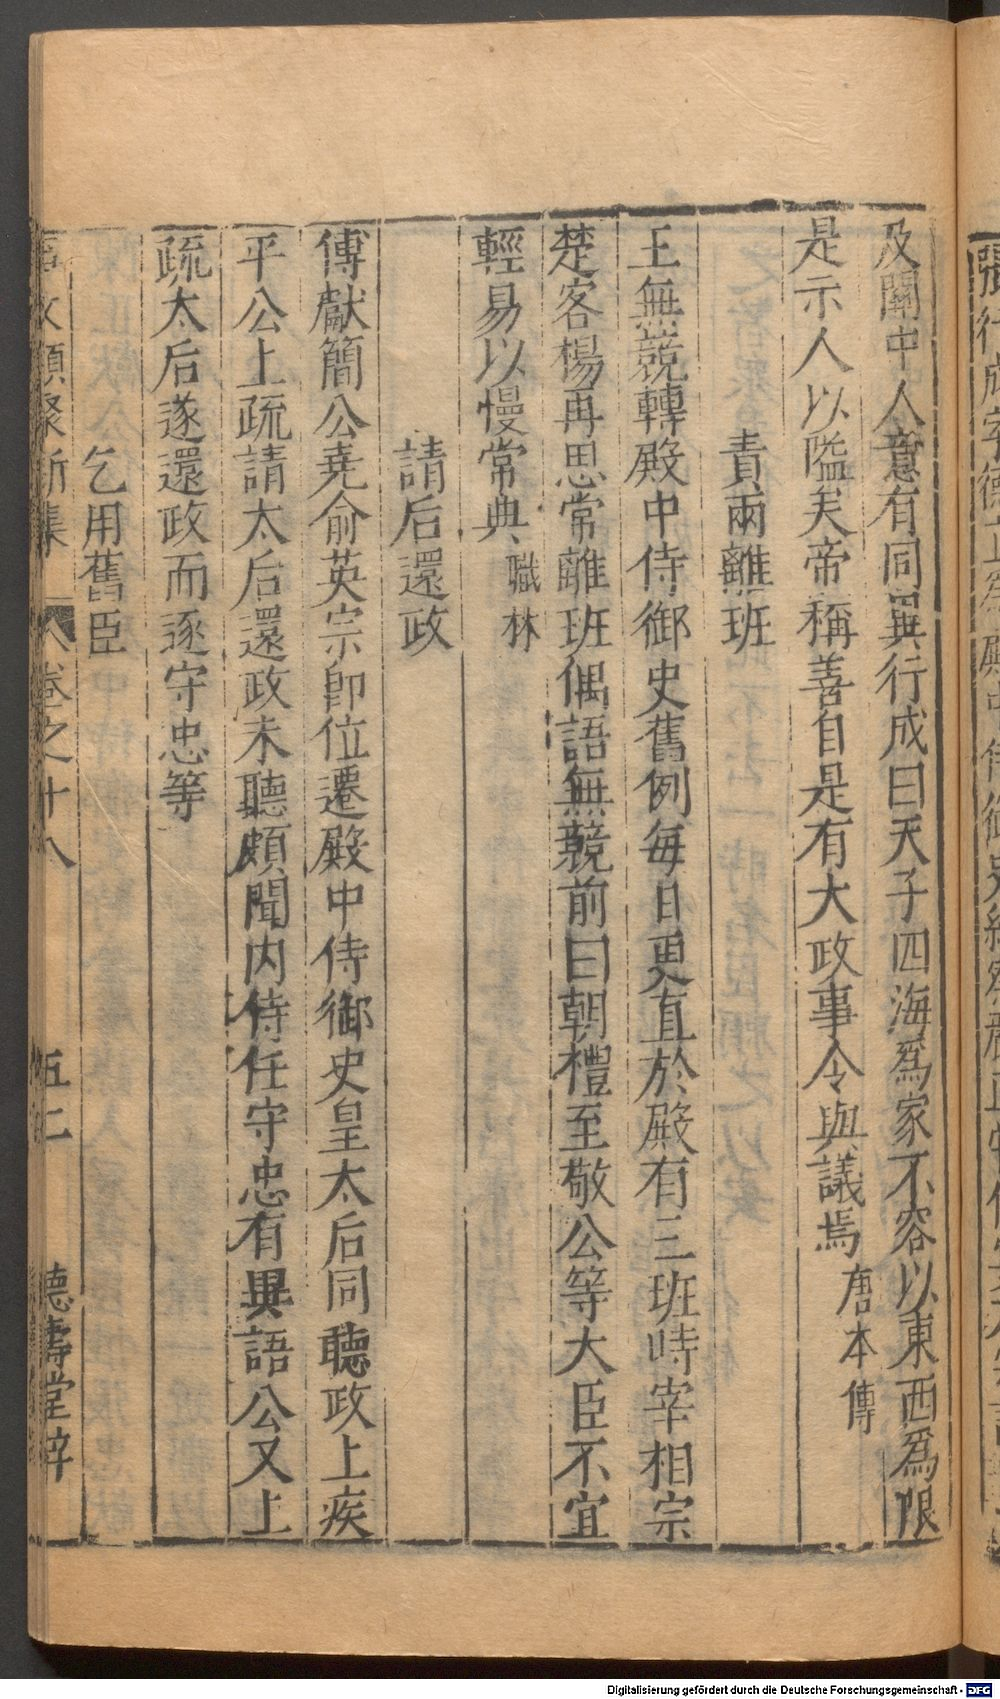 及關中人意有同異行成曰天子四海爲家不容以東西爲限
是示人以隘矣帝稱善自是有大政事令與議焉唐本傳
責兩離班
王無競轉殿中侍御史舊例每日更直於殿有三班時宰相宗
楚客楊再思常離班偶語無競前曰朝禮至敬公等大臣不宜
輕易以慢常典職林
請后還政
傅獻簡公堯俞英宗卽位遷殿中侍御史皇太后同聽政上疾
平公上疏請太后還政未聽頗聞内侍任守忠有異語公又上
疏太后遂還政而逐守忠等
乞用舊臣
事文類聚新集 卷之十八 五二 德壽堂梓
Digitalisierung gefördert durch die Deutsche Forschungsgemeinschaft - DFG